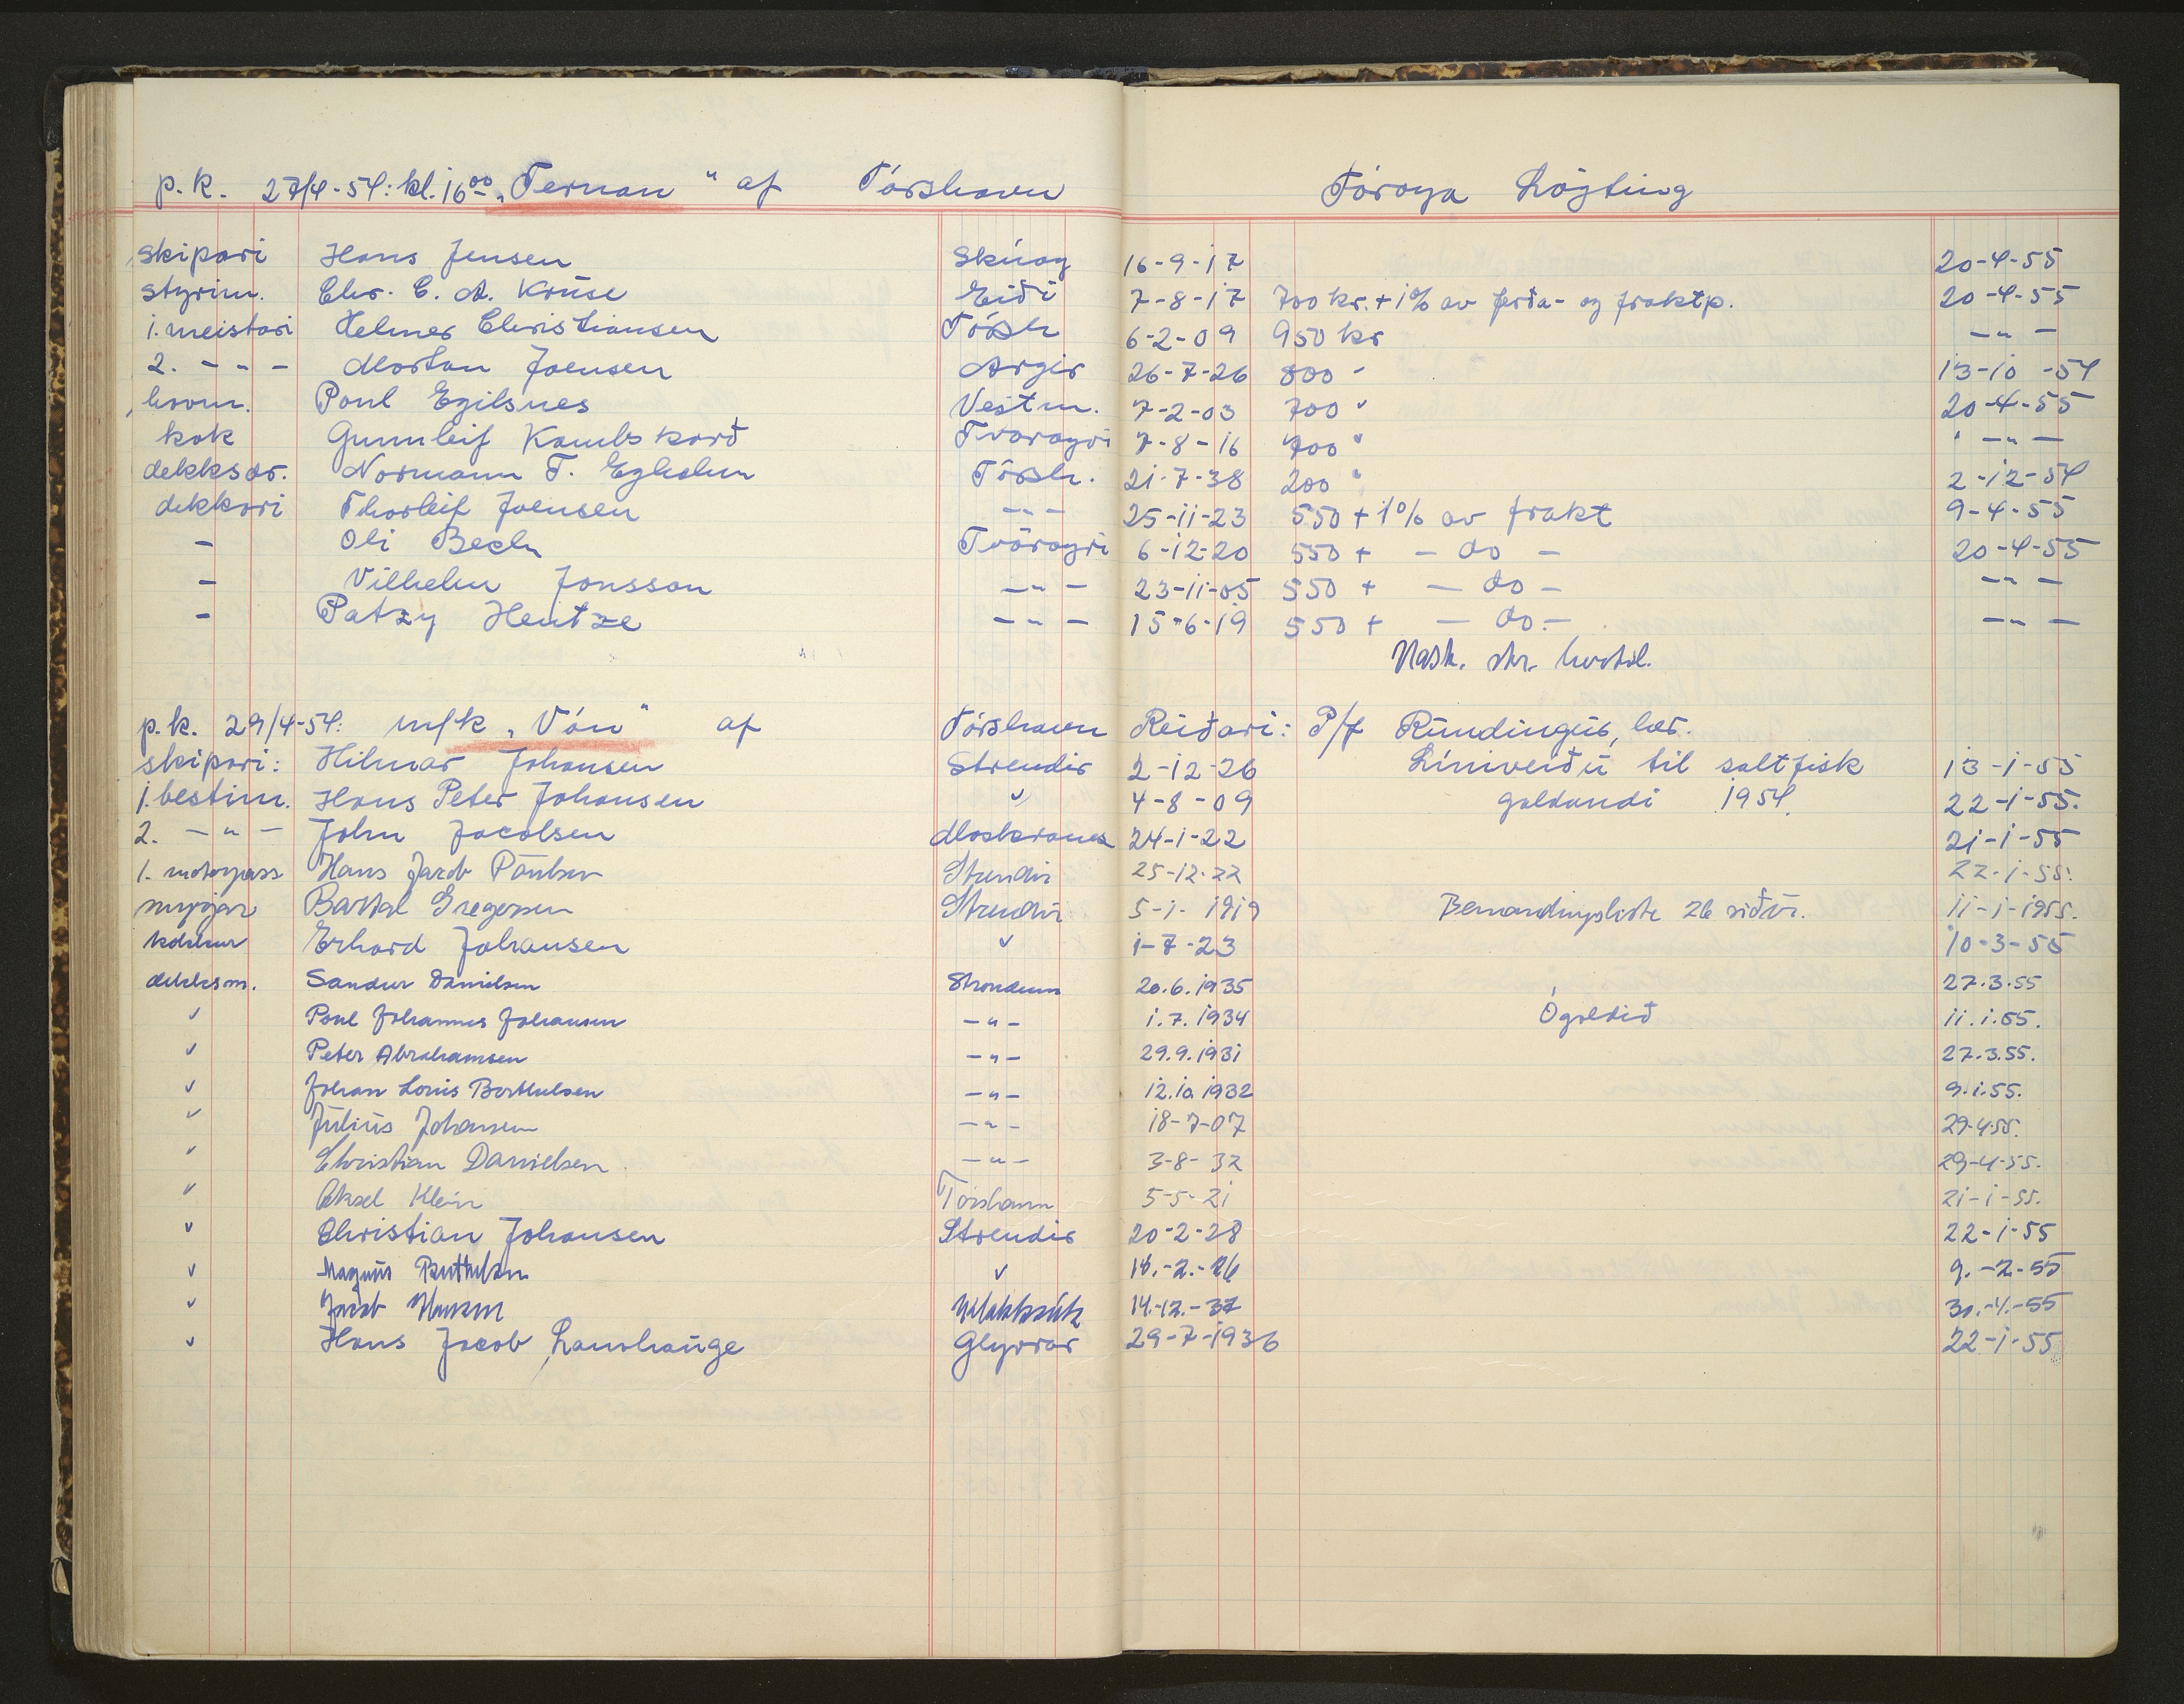 p.k. 27/4-54: kl. 16⁰⁰ „Ternan“ af Tórshavn Föroya Lögting
skipari Hans Jensen Skúoy 16-9-17 20-4-55
styrim. Chr. C. A. Krüse Eiði 7-8-17 700 kr. + 1% av ferða- og fraktp. 20-4-55
1. meistari Helmer Christiansen Tórsh 6-2-09 950 kr — " —
2. - " - Mortan Joensen Argir 26-7-26 800 - 13-10-54
hovm. Poul Egilsnes Vestm. 7-2-03 700 " 20-4-55
kok Gunnleif Kambskarð Tvöroyri 7-8-16 700 " — " —
dekksdr. Normann T. Egholm Tórsh. 21-7-38 200 " 2-12-54
dekkari Thorleif Joensen — " — 25-11-23 550 + 1% av frakt 9-4-55
- Oli Bech Tvöroyri 6-12-20 550 + — do — 20-4-55
- Vilhelm Jonsson — " — 23-11-05 550 + — do — — " —
- Patzy Hentze — " — 15-6-19 550 + — do — — " —
Nask.
p.k. 29/4-54: m/k „Vón“ af Tórshavn Reiðari: P/f Rundingur,
skipari: Hilmar Johansen Strendir 2-12-26 Línuveiðu til saltfisk 13-1-55
1. bestim. Hans Peter Johansen " 4-8-09 galdandi 1954. 22-1-55.
2. — " — John Jacobsen Morskranes 24-1-22 21-1-55
1. motorpass Hans Jacob Poulsen Strendir 25-12-22 22-1-55.
smyrjar Bartal Gregersen Strendir 5-1-1919 Bemandingsliste 26 síður. 11-1-1955.
kokkur Erhard Johansen " 1-7-23 10-3-55
dekksm. Sandur Danielsen Strondum 20.6.1935 27.3.55
" Poul Johannes Johansen — " — 1.7.1934 Ógoldið 11.1.55.
" Peter Abrahamsen — " — 29.9.1931 27.3.55.
" Johan Louis Berthelsen — " — 12.10.1932 9.1.55.
" Júlíus Johansen — " — 18-7-07 29-4-55.
" Christian Danielsen — " — 3-8-32 29-4-55.
" Aksel Klein Tórshavn 5-5-21 21-1-55.
" Christian Johansen Strendir 20-2-28 22-1-55
" Magnus " 9.-2-55
" Jacob Hansen 14.-12.-37 30.-4.-55
" Hans Jacob Lamhauge Glyvrar 29-7-1936 22-1-55